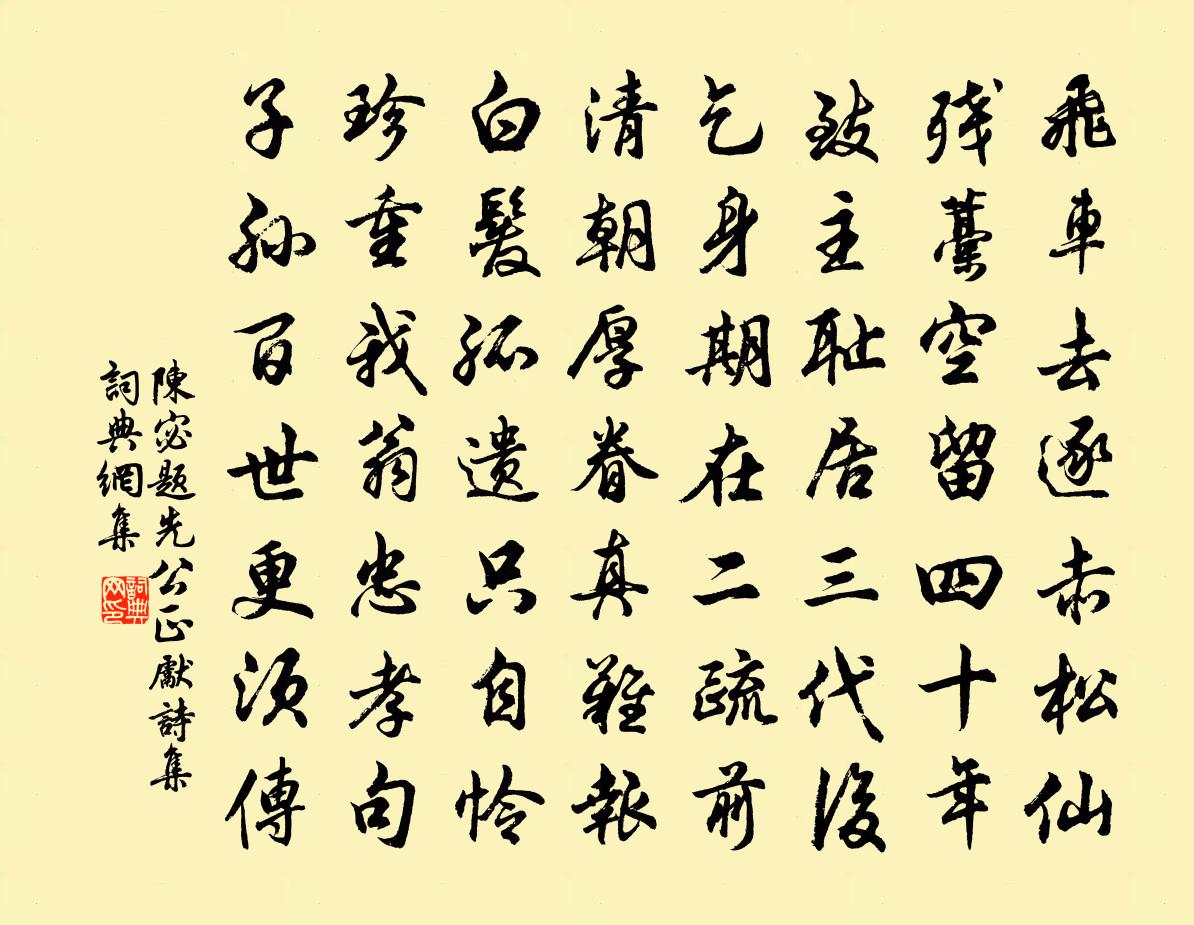 飛車去逐赤松仙
残藁空留四十年
致主耻居三代後
乞身期在二疏前
清朝厚眷真難報
白髮孤遺只自怜
珍重我翁忠孝句
子孫百世更須傳
陳宓題先公正獻詩集
詞典網集
詞典网印